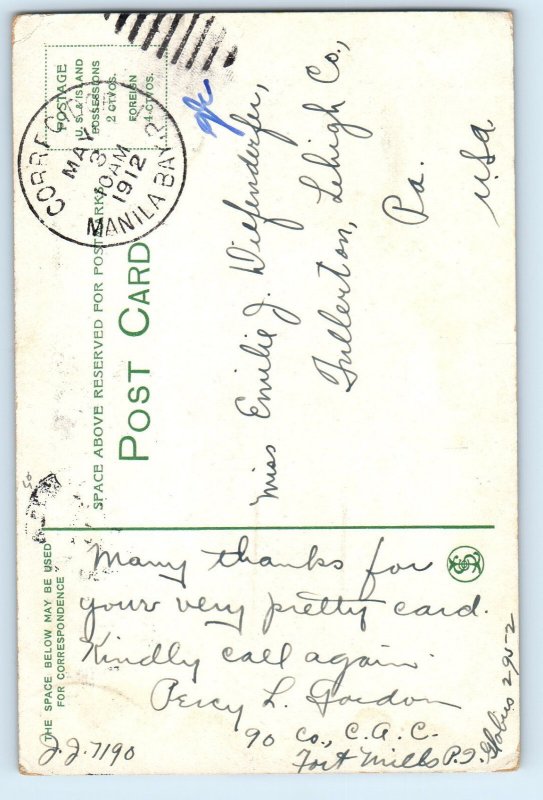 POSTAGE
U. S. & ISLAND
POSSESSIONS
2 CTVOS.
FOREIGN
4 CTVOS.
MAY
3
10AM
1912
MANILA BAY
SPACE ABOVE RESERVED FOR POSTMARK
POST CARD
Miss Emilie J. Diefenderfer,
Fullerton, Lehigh Co.,
Pa.
USA
THE SPACE BELOW MAY BE USED
FOR CORRESPONDENCE
Many thanks for
your very pretty card.
Kindly call again
Percy L. Gordon
90 Co., C.A.C.
Fort Mills P.I.
J.J.7190